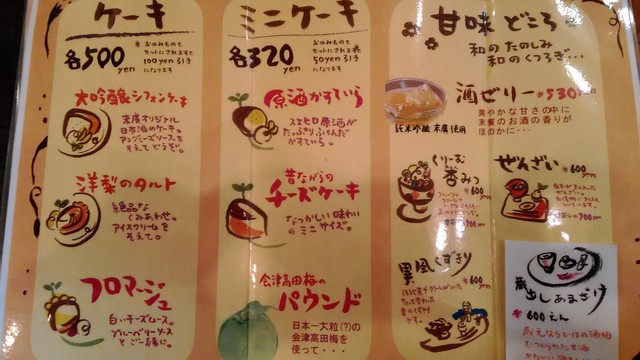 ケーキ
各500yen
※お飲みものと
セットにされますと
100yen引き
になります
大吟醸シフォンケーキ
末廣オリジナル
日本酒のケーキ。
そえてどうぞ。
洋梨のタルト
絶品な
くみあわせ。
アイスクリームを
そえて。
フロマージュ
白いチーズムース。
ブルーベリーソース
とご一緒に。
ミニケーキ
各320yen
お飲みものと
セットにされますと
50yen引き
になります
原酒かすていら
スエヒロ原酒が
たっぷりふくんだ
かすていら。
昔ながらの
チーズケーキ
なつかしい味わい
のミニサイズ。
会津高田梅の
パウンド
日本一大粒(?)の
会津高田梅を
使って・・・
甘味どころ
和のたのしみ
和のくつろぎ…
酒ゼリー ¥530yen
爽やかな甘さの中に
末廣のお酒の香りが
ほのかに・・・
純米吟醸 末廣使用
くりーむ
杏みつ
¥600yen
ぜんざい
¥600yen
異風くずきり
¥600yen
蔵出しあまざけ
600えん